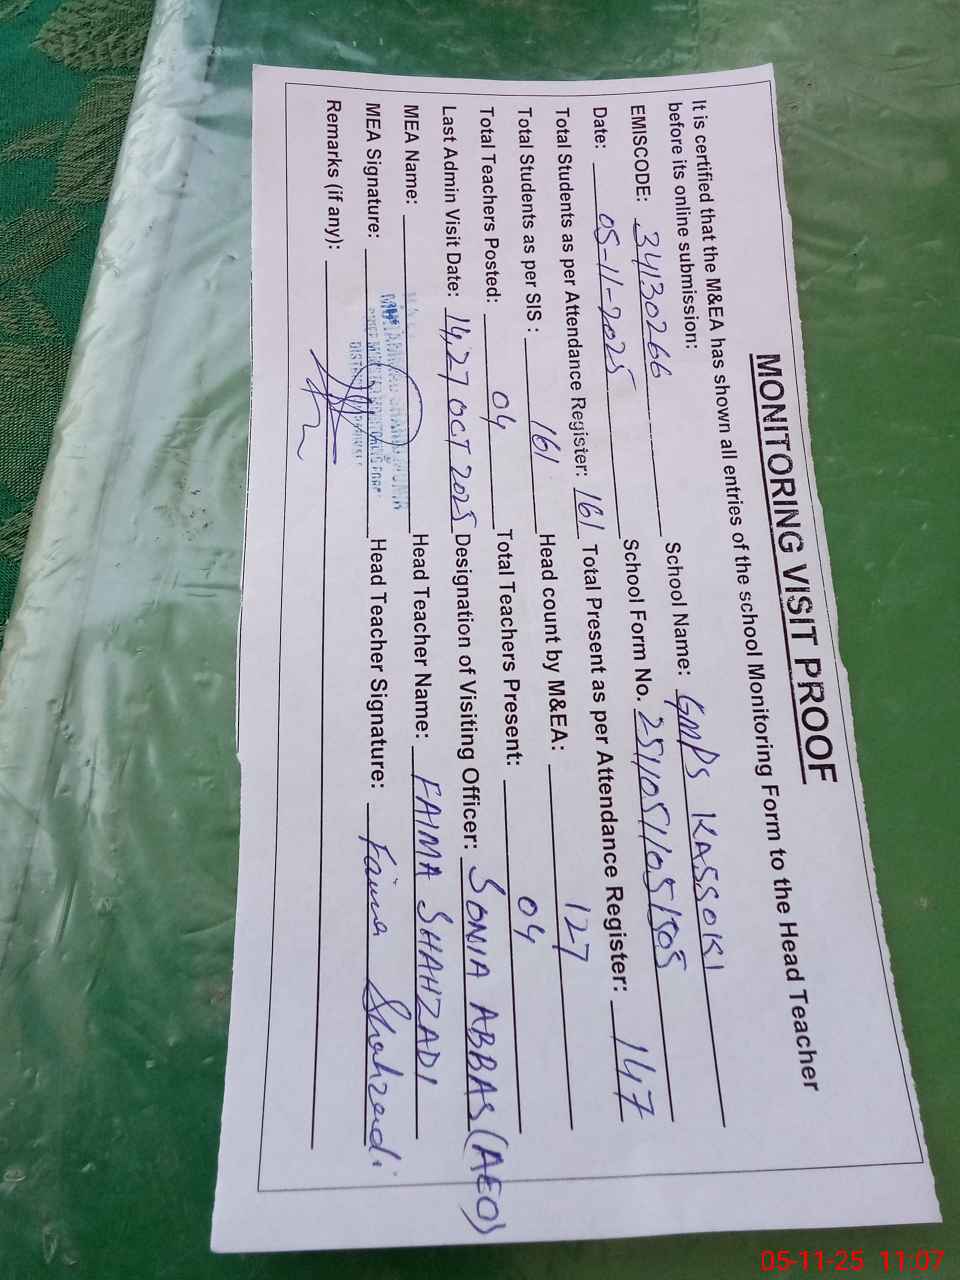 MONITORING VISIT PROOF
It is certified that the M&EA has shown all entries of the school Monitoring Form to the Head Teacher
before its online submission:
EMISCODE: 34130266 School Name: GMPS KASSOKI
Date: 05-11-2025 School Form No. 25110511051505
Total Students as per Attendance Register: 161 Total Present as per Attendance Register: 147
Total Students as per SIS : 161 Head count by M&EA: 127
Total Teachers Posted: 04 Total Teachers Present: 04
Last Admin Visit Date: 14,27 OCT 2025 Designation of Visiting Officer: SONIA ABBAS (AEO)
MEA Name: Head Teacher Name: FAIMA SHAHZADI
MEA Signature: Head Teacher Signature: Faima Shahzadi
Remarks (if any):
05-11-25 11:07